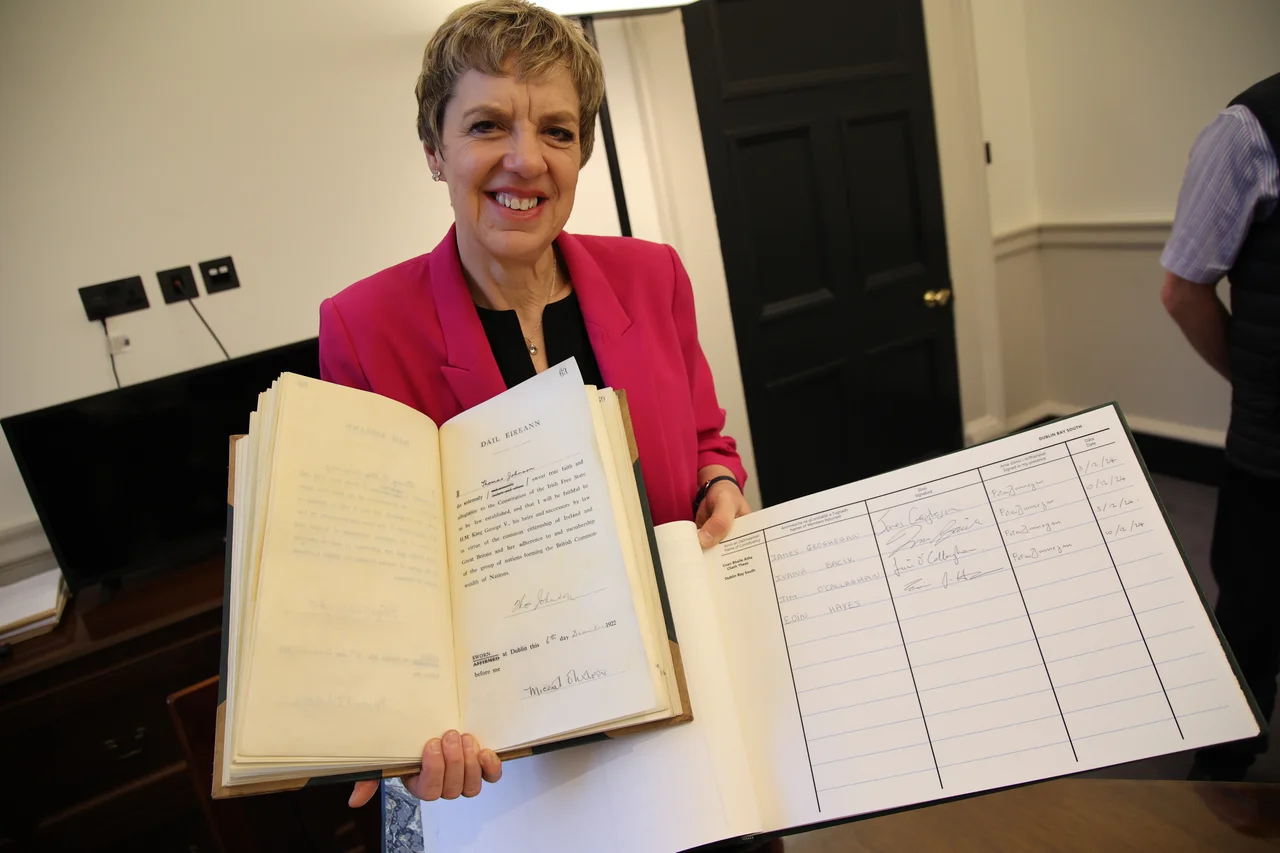 63
DAIL EIREANN
I Thomas Johnson
do solemnly swear true faith and
allegiance to the Constitution of the Irish Free State
as by law established, and that I will be faithful to
H.M. King George V., his heirs and successors by law
in virtue of the common citizenship of Ireland and
Great Britain and her adherence to and membership
of the group of nations forming the British Common
wealth of Nations.
Thos Johnson
SWORN
AFFIRMED at Dublin this 6th day December 1922
before me
DUBLIN BAY SOUTH
Name of Constituency
Name of Member Returned
Signature
Signed in my presence
Dáta
Date
Cuan Bhaile Átha
Cliath Theas
Dublin Bay South
JAMES GEOGHEGAN James Geoghegan 5/12/24
IVANA BACIK Ivana Bacik 10/12/24
JIM O'CALLAGHAN Jim O'Callaghan 5/12/24
EOIN HAYES 10/12/24